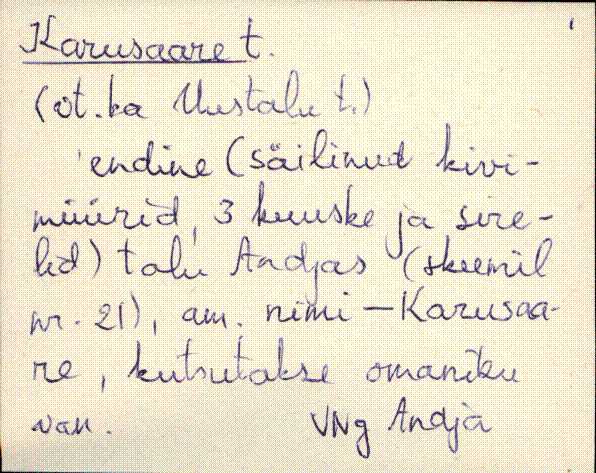 Karusaare t.
(vt. ka Uustalu t.)
endine (säilinud kivi-
müürid, 3 kuuske ja sire-
lid) talu Andjas (skeemil
nr. 21), am. nimi – Karusaa-
re, kutsutakse omaniku
van. VNg Andja